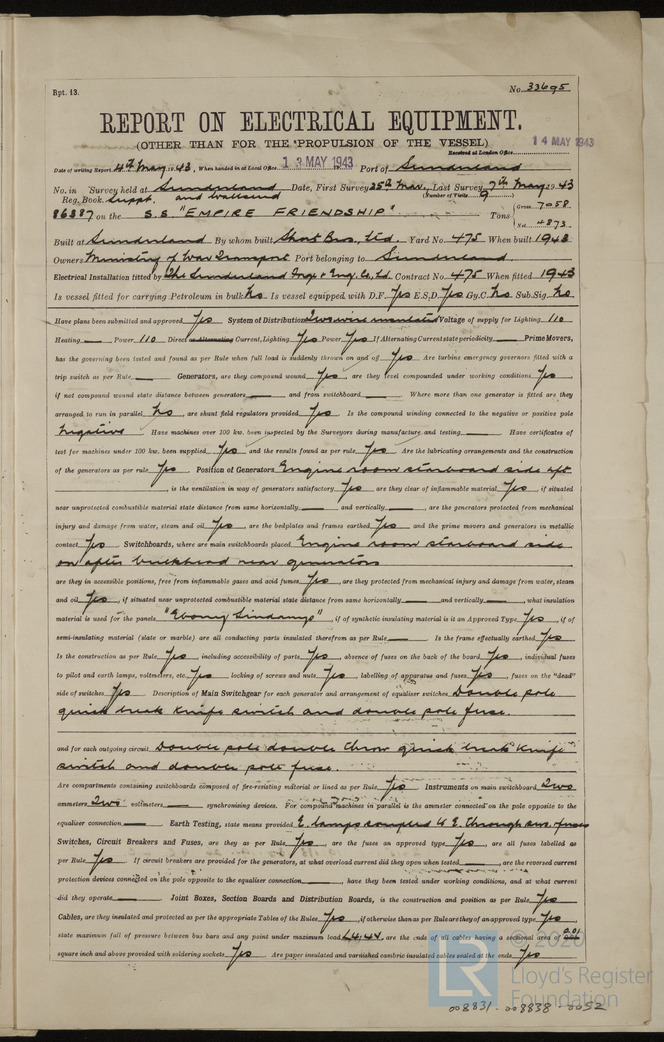 Rpt. 13.
No. 33695
REPORT ON ELECTRICAL EQUIPMENT.
(OTHER THAN FOR THE PROPULSION OF THE VESSEL)
14 MAY 1943
Received at London Office
Date of writing Report 4th May 1943. When handed in at Local Office 13 MAY 1943 Port of Sunderland
No. in Survey held at Sunderland Date, First Survey 25th Mar. Last Survey 7th May 1943
Reg. Book. Suppt. and Wallsend (Number of Visits 9)
86387 on the S.S. "EMPIRE FRIENDSHIP" Tons { Gross 7058
Net 4873
Built at Sunderland By whom built Short Bros. Ltd. Yard No. 475 When built 1943
Owners Ministry of War Transport Port belonging to Sunderland
Electrical Installation fitted by The Sunderland Forge & Eng. Co. Ld. Contract No. 475 When fitted 1943
Is vessel fitted for carrying Petroleum in bulk No Is vessel equipped with D.F. Yes E.S.D. Yes Gy.C. No Sub.Sig. No
Have plans been submitted and approved Yes System of Distribution Two wire insulated Voltage of supply for Lighting 110
Heating — Power 110 Direct or Alternating Current, Lighting Yes Power Yes If Alternating Current state periodicity — Prime Movers,
has the governing been tested and found as per Rule when full load is suddenly thrown on and off Yes Are turbine emergency governors fitted with a
trip switch as per Rule — Generators, are they compound wound Yes, are they level compounded under working conditions Yes,
if not compound wound state distance between generators — and from switchboard — Where more than one generator is fitted are they
arranged to run in parallel No, are shunt field regulators provided Yes Is the compound winding connected to the negative or positive pole
Negative Have machines over 100 kw. been inspected by the Surveyors during manufacture and testing — Have certificates of
test for machines under 100 kw. been supplied Yes and the results found as per rule Yes Are the lubricating arrangements and the construction
of the generators as per rule Yes Position of Generators Engine room starboard side aft
, is the ventilation in way of generators satisfactory Yes, are they clear of inflammable material Yes, if situated
near unprotected combustible material state distance from same horizontally — and vertically —, are the generators protected from mechanical
injury and damage from water, steam and oil Yes, are the bedplates and frames earthed Yes and the prime movers and generators in metallic
contact Yes Switchboards, where are main switchboards placed Engine room starboard side
on after bulkhead near generators
are they in accessible positions, free from inflammable gases and acid fumes Yes, are they protected from mechanical injury and damage from water, steam
and oil Yes, if situated near unprotected combustible material state distance from same horizontally — and vertically —, what insulation
material is used for the panels "Ebony Sindanyo", if of synthetic insulating material is it an Approved Type Yes, if of
semi-insulating material (slate or marble) are all conducting parts insulated therefrom as per Rule — Is the frame effectually earthed Yes
Is the construction as per Rule Yes, including accessibility of parts Yes, absence of fuses on the back of the board Yes, individual fuses
to pilot and earth lamps, voltmeters, etc. Yes locking of screws and nuts Yes, labelling of apparatus and fuses Yes, fuses on the "dead"
side of switches Yes Description of Main Switchgear for each generator and arrangement of equaliser switches Double pole
quick break knife switch and double pole fuse.
and for each outgoing circuit Double pole double throw quick break knife
switch and double pole fuse.
Are compartments containing switchboards composed of fire-resisting material or lined as per Rule Yes Instruments on main switchboard Two
ammeters Two voltmeters — synchronising devices. For compound machines in parallel is the ammeter connected on the pole opposite to the
equaliser connection — Earth Testing, state means provided E. lamps coupled to E. through sw. & fuses
Switches, Circuit Breakers and Fuses, are they as per Rule Yes, are the fuses an approved type Yes, are all fuses labelled as
per Rule Yes If circuit breakers are provided for the generators, at what overload current did they open when tested —, are the reversed current
protection devices connected on the pole opposite to the equaliser connection —, have they been tested under working conditions, and at what current
did they operate — Joint Boxes, Section Boards and Distribution Boards, is the construction and position as per Rule Yes
Cables, are they insulated and protected as per the appropriate Tables of the Rules Yes, if otherwise than as per Rule are they of an approved type Yes,
state maximum fall of pressure between bus bars and any point under maximum load 4.4V, are the ends of all cables having a sectional area of 0.01
square inch and above provided with soldering sockets Yes Are paper insulated and varnished cambric insulated cables sealed at the ends Yes
© 2020
LR
Lloyd's Register
Foundation
008831-008838-0052